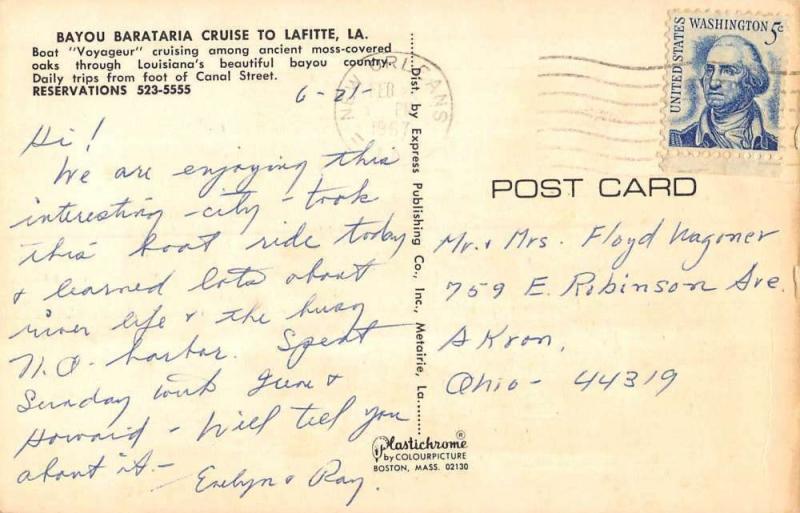 BAYOU BARATARIA CRUISE TO LAFITTE, LA.
Boat "Voyageur" cruising among ancient moss-covered
oaks through Louisiana's beautiful bayou country.
Daily trips from foot of Canal Street.
RESERVATIONS 523-5555
6-21-
Hi!
We are enjoying this
interesting city - took
this boat ride today
& learned lots about
river life & the busy
N.O. harbor. Spent
Sunday with June &
Howard - Will tell you
about it -
Evelyn & Ray.
Dist. by Express Publishing Co., Inc., Metairie, La.
Plastichrome®
by COLOURPICTURE
BOSTON, MASS. 02130
NEW ORLEANS
FEB
1967
UNITED STATES
WASHINGTON 5c
POST CARD
Mr. & Mrs. Floyd Wagoner
759 E. Robinson Ave.
Akron,
Ohio - 44319